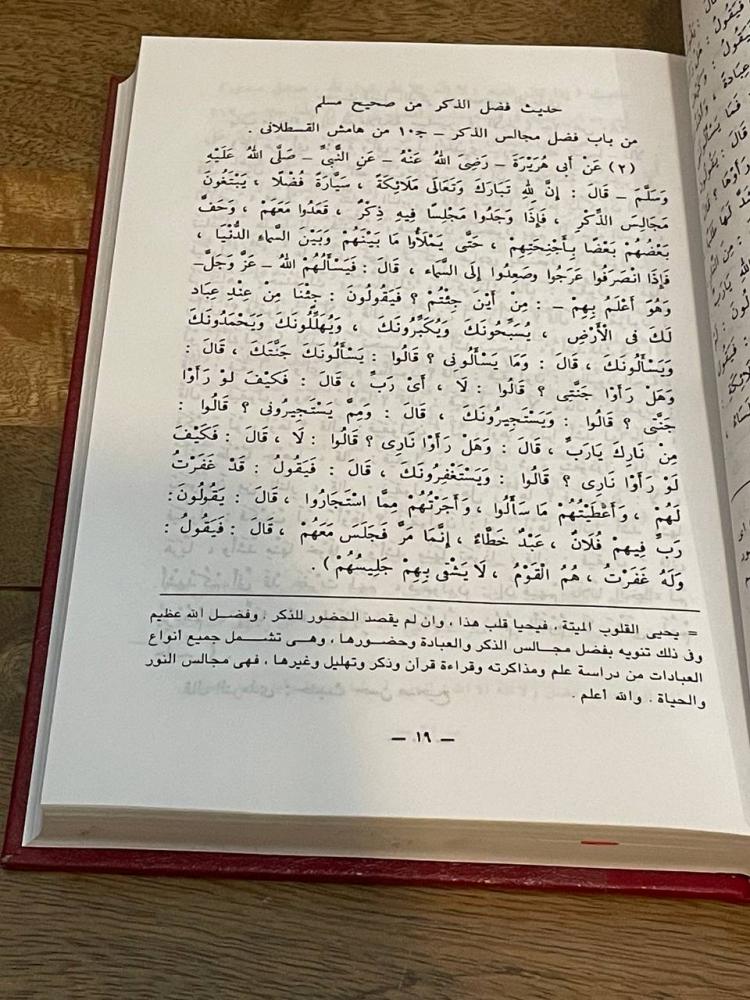 حديث فضل الذكر من صحيح مسلم
من باب فضل مجالس الذكر – جـ١٠ من هامش القسطلانى .
(٢) عَنْ أَبِى هُرَيْرَةَ – رَضِىَ اللهُ عَنْهُ – عَنِ النَّبِىِّ – صَلَّى اللهُ عَلَيْهِ
وَسَلَّمَ – قَالَ : إِنَّ لِلهِ تَبَارَكَ وَتَعَالَى مَلَائِكَةً ، سَيَّارَةً فُضُلًا ، يَبْتَغُونَ
مَجَالِسَ الذِّكْرِ ، فَإِذَا وَجَدُوا مَجْلِسًا فِيهِ ذِكْرٌ ، قَعَدُوا مَعَهُمْ ، وَحَفَّ
بَعْضُهُمْ بَعْضًا بِأَجْنِحَتِهِمْ ، حَتَّى يَمْلَأُوا مَا بَيْنَهُمْ وَبَيْنَ السَّمَاءِ الدُّنْيَا ،
فَإِذَا انْصَرَفُوا عَرَجُوا وصَعِدُوا إِلَى السَّمَاء ، قَالَ : فَيَسْأَلُهُمْ اللهُ – عَزَّ وَجَلَّ–
وَهُوَ أَعْلَمُ بِهِمْ – : مِنْ أَيْنَ جِئْتُمْ ؟ فَيَقُولُونَ : جِئْنَا مِنْ عِنْدِ عِبَاد
لَكَ فِى الْأَرْضِ ، يُسَبِّحُونَكَ وَيُكَبِّرُونَكَ ، وَيُهَلِّلُونَكَ وَيَحْمَدُونَكَ
وَيَسْأَلُونَكَ ، قَالَ : وَمَا يَسْأَلُونِى ؟ قَالُوا : يَسْأَلُونَكَ جَنَّتَكَ ، قَالَ :
وَهَلْ رَأَوْا جَنَّتِى ؟ قَالُوا : لَا ، أَىْ رَبِّ ، قَالَ : فَكَيْفَ لَوْ رَأَوْا
جَنَّتِى ؟ قَالُوا : وَيَسْتَجِيرُونَكَ ، قَالَ : وَمِمَّ يَسْتَجِيرُونِى ؟ قَالُوا :
مِنْ نَارِكَ يَارَبِّ ، قَالَ : وَهَلْ رَأَوْا نَارِى ؟ قَالُوا : لَا ، قَالَ : فَكَيْفَ
لَوْ رَأَوْا نَارِى ؟ قَالُوا : وَيَسْتَغْفِرُونَكَ ، قَالَ : فَيَقُولُ : قَدْ غَفَرْتُ
لَهُمْ ، وَأَعْطَيْتُهُمْ مَا سَأَلُوا ، وَأَجَرْتُهُمْ مِمَّا اسْتَجَارُوا ، قَالَ : يَقُولُونَ :
رَبِّ فِيهِمْ فُلَانٌ ، عَبْدٌ خَطَّاءٌ ، إِنَّمَا مَرَّ فَجَلَسَ مَعَهُمْ ، قَالَ : فَيَقُولُ :
وَلَهُ غَفَرْتُ ، هُمُ الْقَوْمُ ، لَا يَشْقَى بِهِمْ جَلِيسُهُمْ ) .
= يحيى القلوب الميتة ، فيحيا قلب هذا ، وان لم يقصد الحضور للذكر ، وفضل الله عظيم
وفى ذلك تنويه بفضل مجالس الذكر والعبادة وحضورها ، وهى تشمل جميع انواع
العبادات من دراسة علم ومذاكرته وقراءة قرآن وذكر وتهليل وغيرها ، فهى مجالس النور
والحياة . والله أعلم .
– ١٩ –